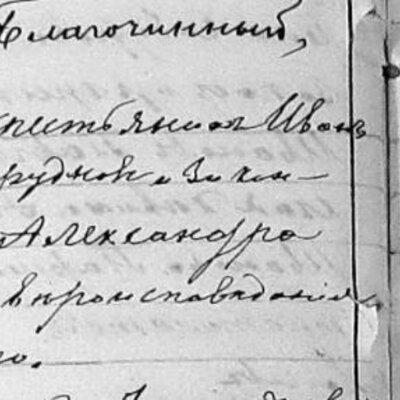 Благочинный,
крестьянинъ Иванъ
руднов и закон-
Александра
вѣроисповѣданія
го.